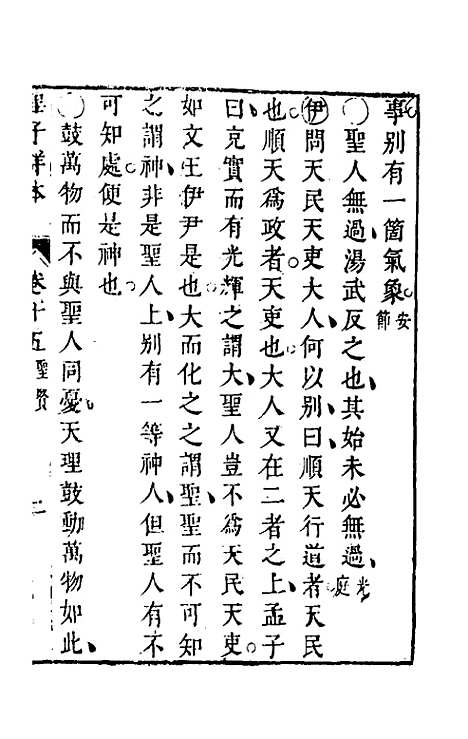 事別有一箇氣象安節
聖人無過湯武反之也其始未必無過光庭
伊問天民天吏大人何以別曰順天行道者天民
也順天爲政者天吏也大人又在二者之上孟子
曰充實而有光輝之謂大聖人豈不爲天民天吏
如文王伊尹是也大而化之之謂聖聖而不可知
之謂神非是聖人上別有一等神人但聖人有不
可知處便是神也
鼓萬物而不與聖人同憂天理鼓動萬物如此
程子詳本 卷十五 聖賢 二